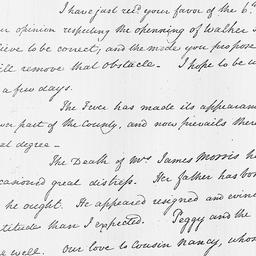 I have just recd your favor of the 6th
opinion respecting the openning of Walker
to be correct, and the mode you propose
remove that obstacle - I hope to be
a few days.
The Fever has made its appearan
part of the County, and now prevails there
degree -
The Death of Mrs James Morris h
casioned great distress. Her father has bor
he ought. He appeared resigned and evin
titude than I expected. Peggy and the
well. Our love to Cousin Nancy, whom